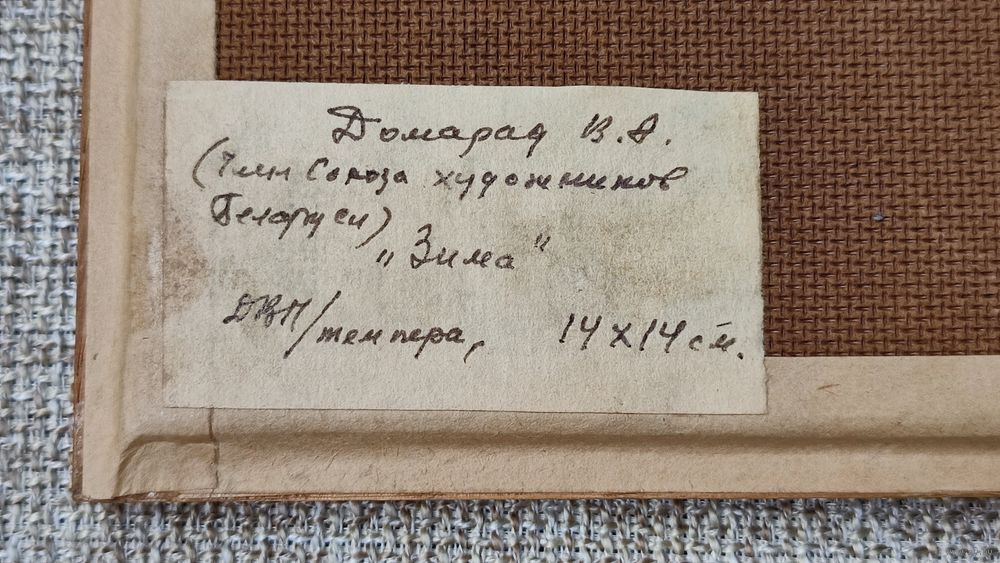 Домарад В.А.
(Член Союза художников
Беларуси)
„Зима"
ДВП/темпера, 14х14 см.